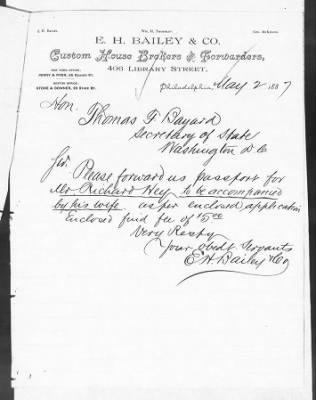 E. H. BAILEY & CO.
Custom House Brokers & Forwarders,
406 LIBRARY STREET.
NEW YORK OFFICE:
BOSTON OFFICE:
STONE & DOWNER, 28 State St.
Philadelphia, May 2 1887
Hon.
Thomas F. Bayard
Secretary of State
Washington D.C.
Sir. Please forward us passport for
Mr Richard Hey to be accompanied
by his wife as per enclosed application
Enclosed find fee of $5.00
Very Respy
Your Obedt Servants
E H Bailey & Co